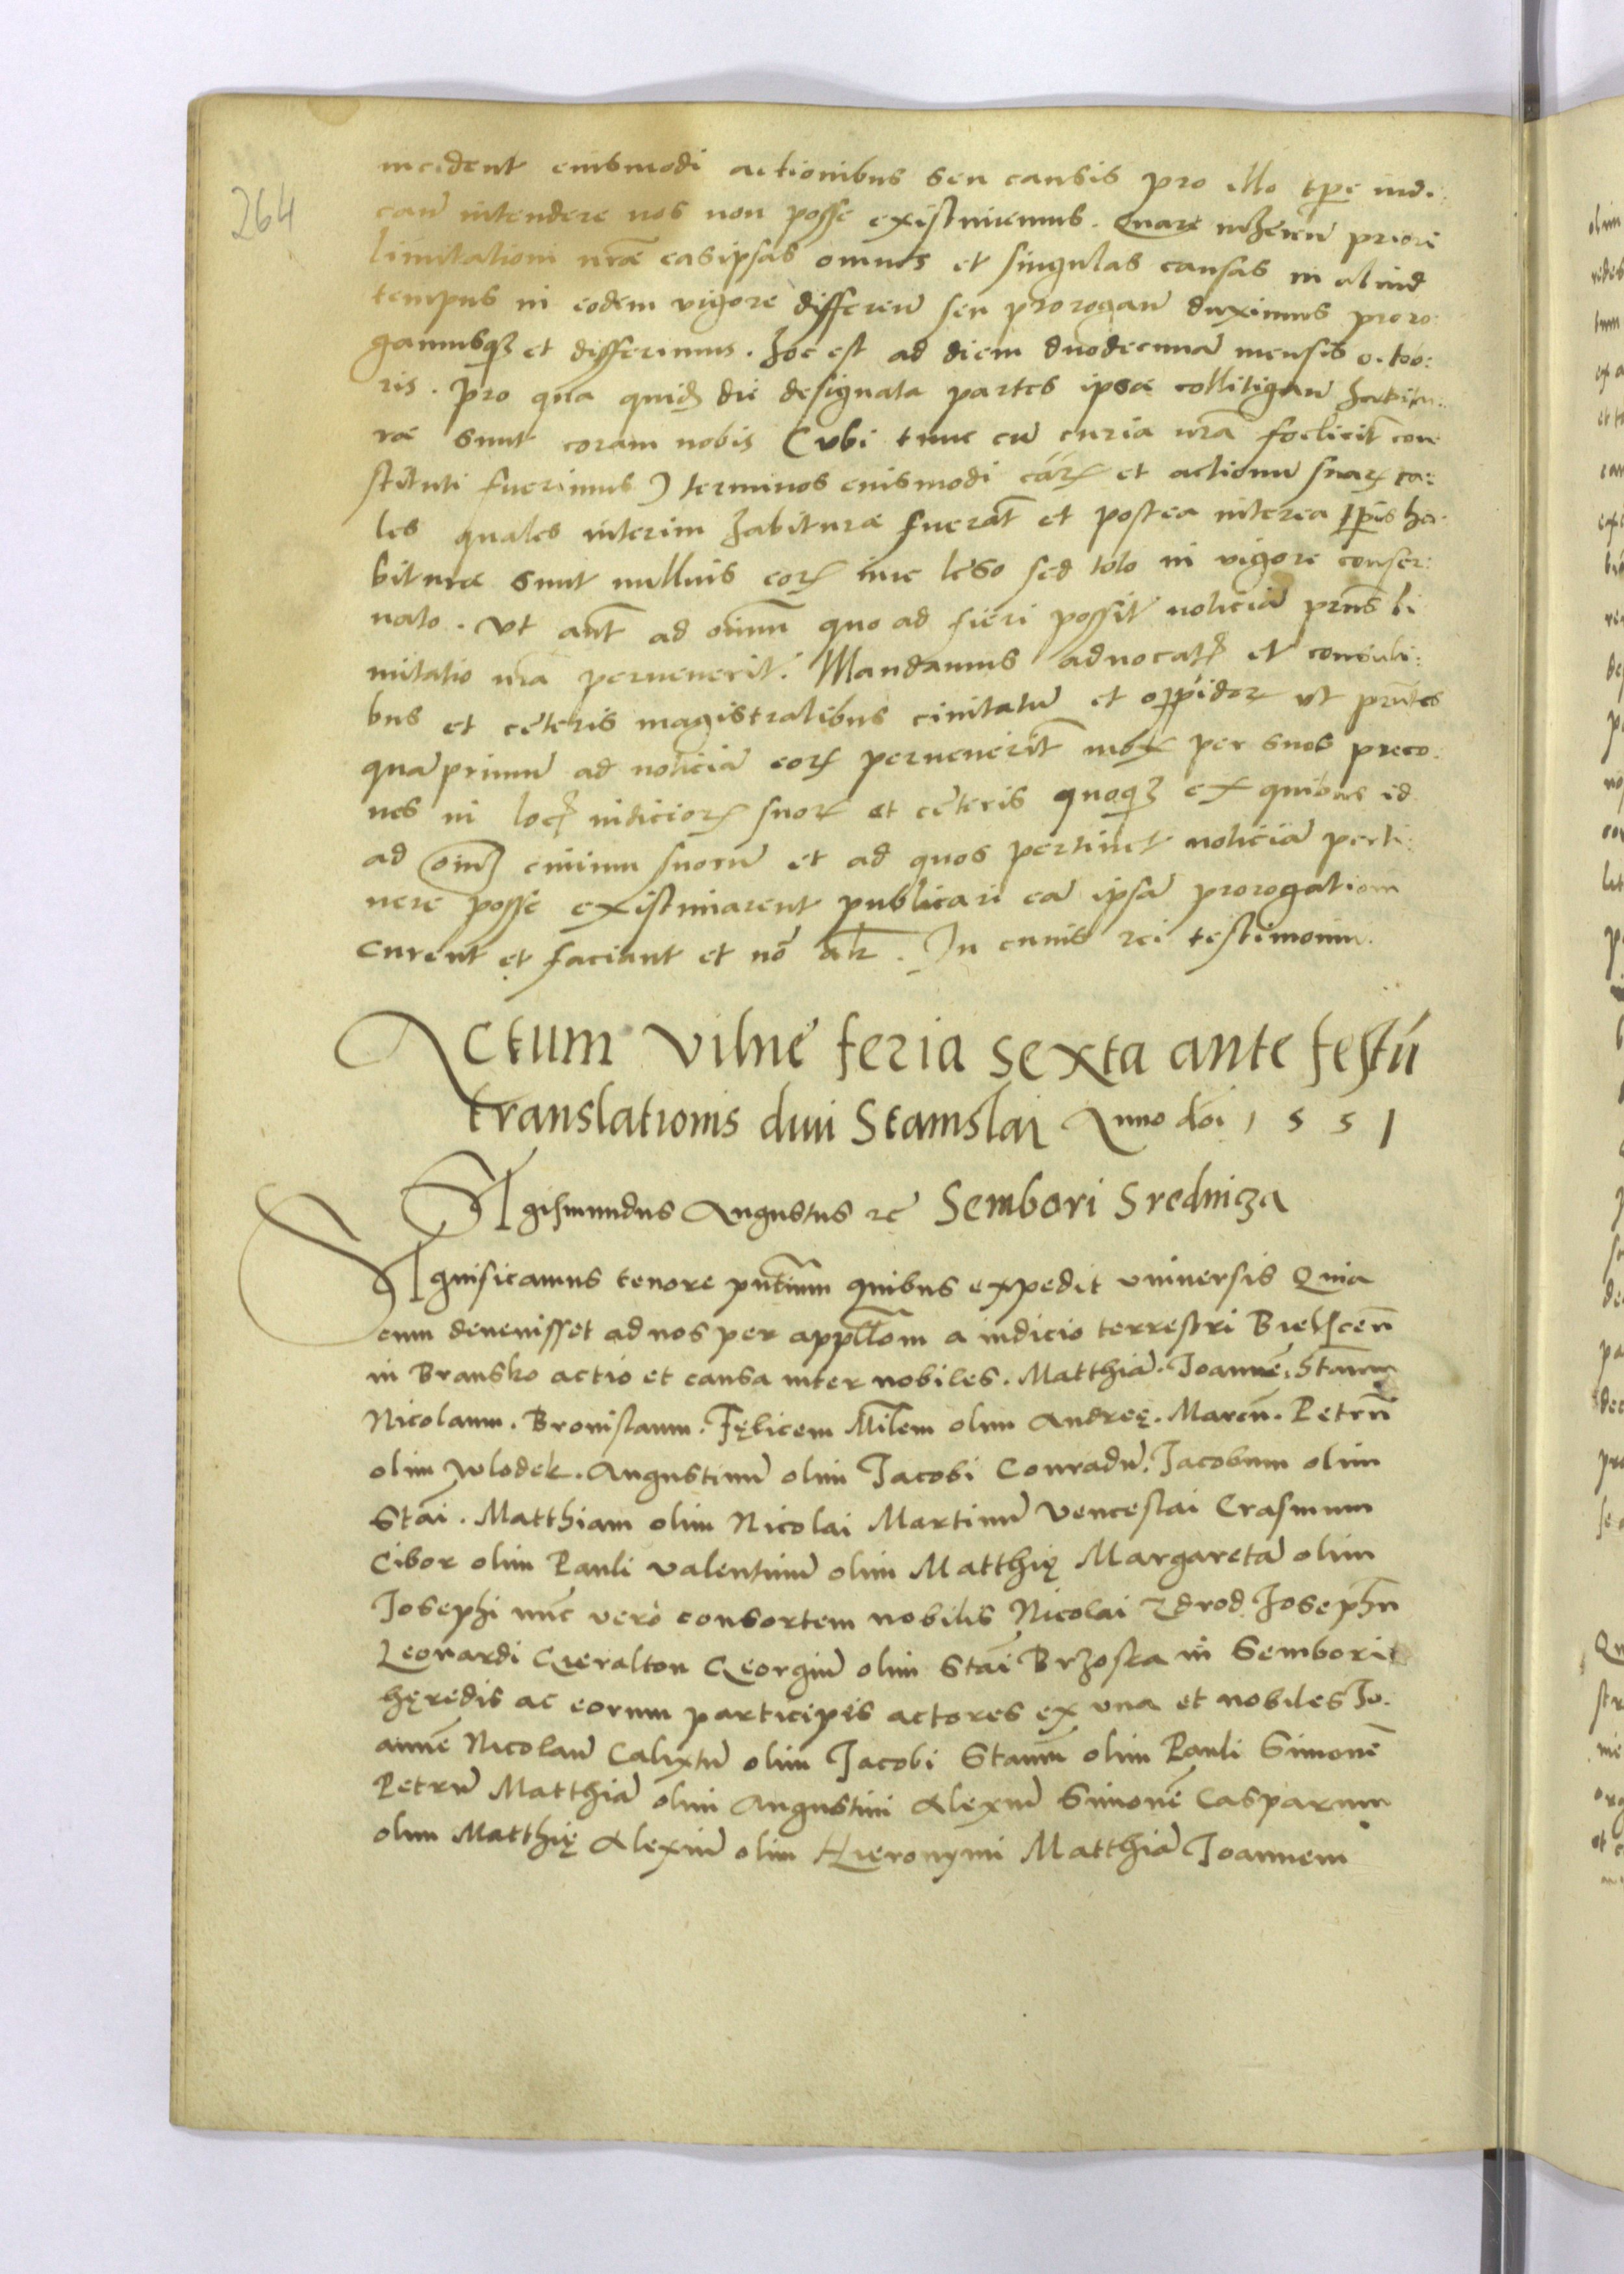 264
incident eiusmodi actionibus seu causis pro illo tpe iudi:
can̄ intendere nos non posse existimemus. Quare inherēn priori
limitationi nrae eas ipsas omnes et singulas causas in aliud
tempus in eodem vigore differen̄ seu prorogan̄ duximus proro:
gamusq₃ et differimus. Hoc est ad diem duodecimā mensis octob:
ris. Pro qua quid₃ die designata partes ipsae collitigan̄ habitu:
rae sunt coram nobis (ubi tunc cū curia nrā foelicit̄ con
stituti fuerimus) terminos eiusmodi cārꝝ et actionū suarꝝ ta:
les quales interim habiturae fuerāt et postea interea tp̄is ha:
biturae sunt nullius eorꝝ iure leso sed toto in vigore conser:
uato. Vt aūt ad om̄ium quo ad fieri possit noticiā prn̄s li
mitatio nrā peruenerit. Mandamus aduocatꝭ et consuli:
bus et ceteris magistratibus ciuitatū et oppidorꝝ vt prn̄tes
quā primum ad noticiā eorꝝ peruenerīt mox per suos preco:
nes in locꝭ iudiciorꝝ suorꝝ et ceteris quoq₃ ex quibus id
ad om̄iū ciuium suorū et ad quos pertinet noticiā perti:
nere posse existimarent publicari eā ipsā prorogationem
curent et faciant et nō alr̄. In cuius rei testimoniu.
Actum Vilnę feria sexta ante festū
translationis diui Stanislai Anno dōi 1 5 5 1
SIgismundus Augustus ꝛc̄ Sembori Srednicza
SIgnificamus tenore pn̄tium quibus expedit vniuersis Quia
cum deuenisset ad nos per appll̄om a iudicio terrestri Bielscen̄
in Bransko actio et causa inter nobiles. Matthiā. Joannē. Stanm
Nicolaum. Bronislaum. Fęlicem Mīlem olim Andreę. Marcū. Petrū
olim Wlodek. Augustinū olim Jacobi Conradū. Jacobum olim
Stāi. Matthiam olim Nicolai Martinū Venceslai Erasmum
Cibor olim Pauli Valentinū olim Matthię Margaretā olim
Josephi nūc verò consortem nobilis Nicolai Zdrod Josephū
Leonardi Gieralton Georgiū olim Stāi Brzoska in Sembori
hęredis ac eorum participes actores ex vna et nobiles Jo:
annē Nicolaū Calixtū olim Jacobi Stanm̄ olim Pauli Simonē
Petrū Matthiā olim Augustini Alexiū Simonē Casparum
olim Matthię Alexiū olim Hieronymi Matthiā Joannem